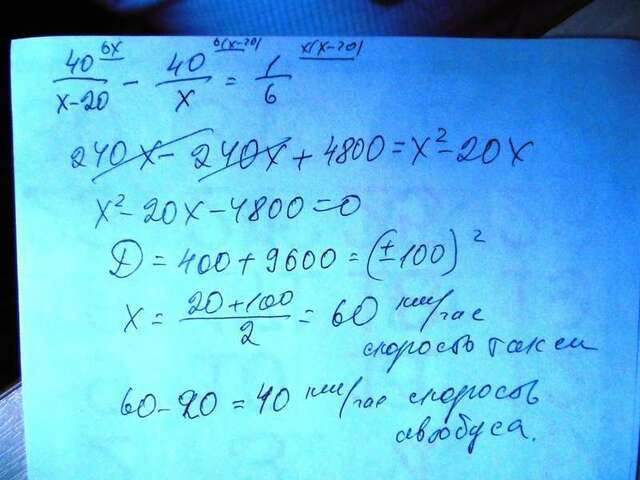 40 6x / x-20 - 40 6(x-20) / x = 1 x(x-20) / 6
240x - 240x + 4800 = x² - 20x
x² - 20x - 4800 = 0
D = 400 + 9600 = (±100)²
x = 20+100 / 2 = 60 км/час
скорость такси
60 - 20 = 40 км/час скорость
автобуса.